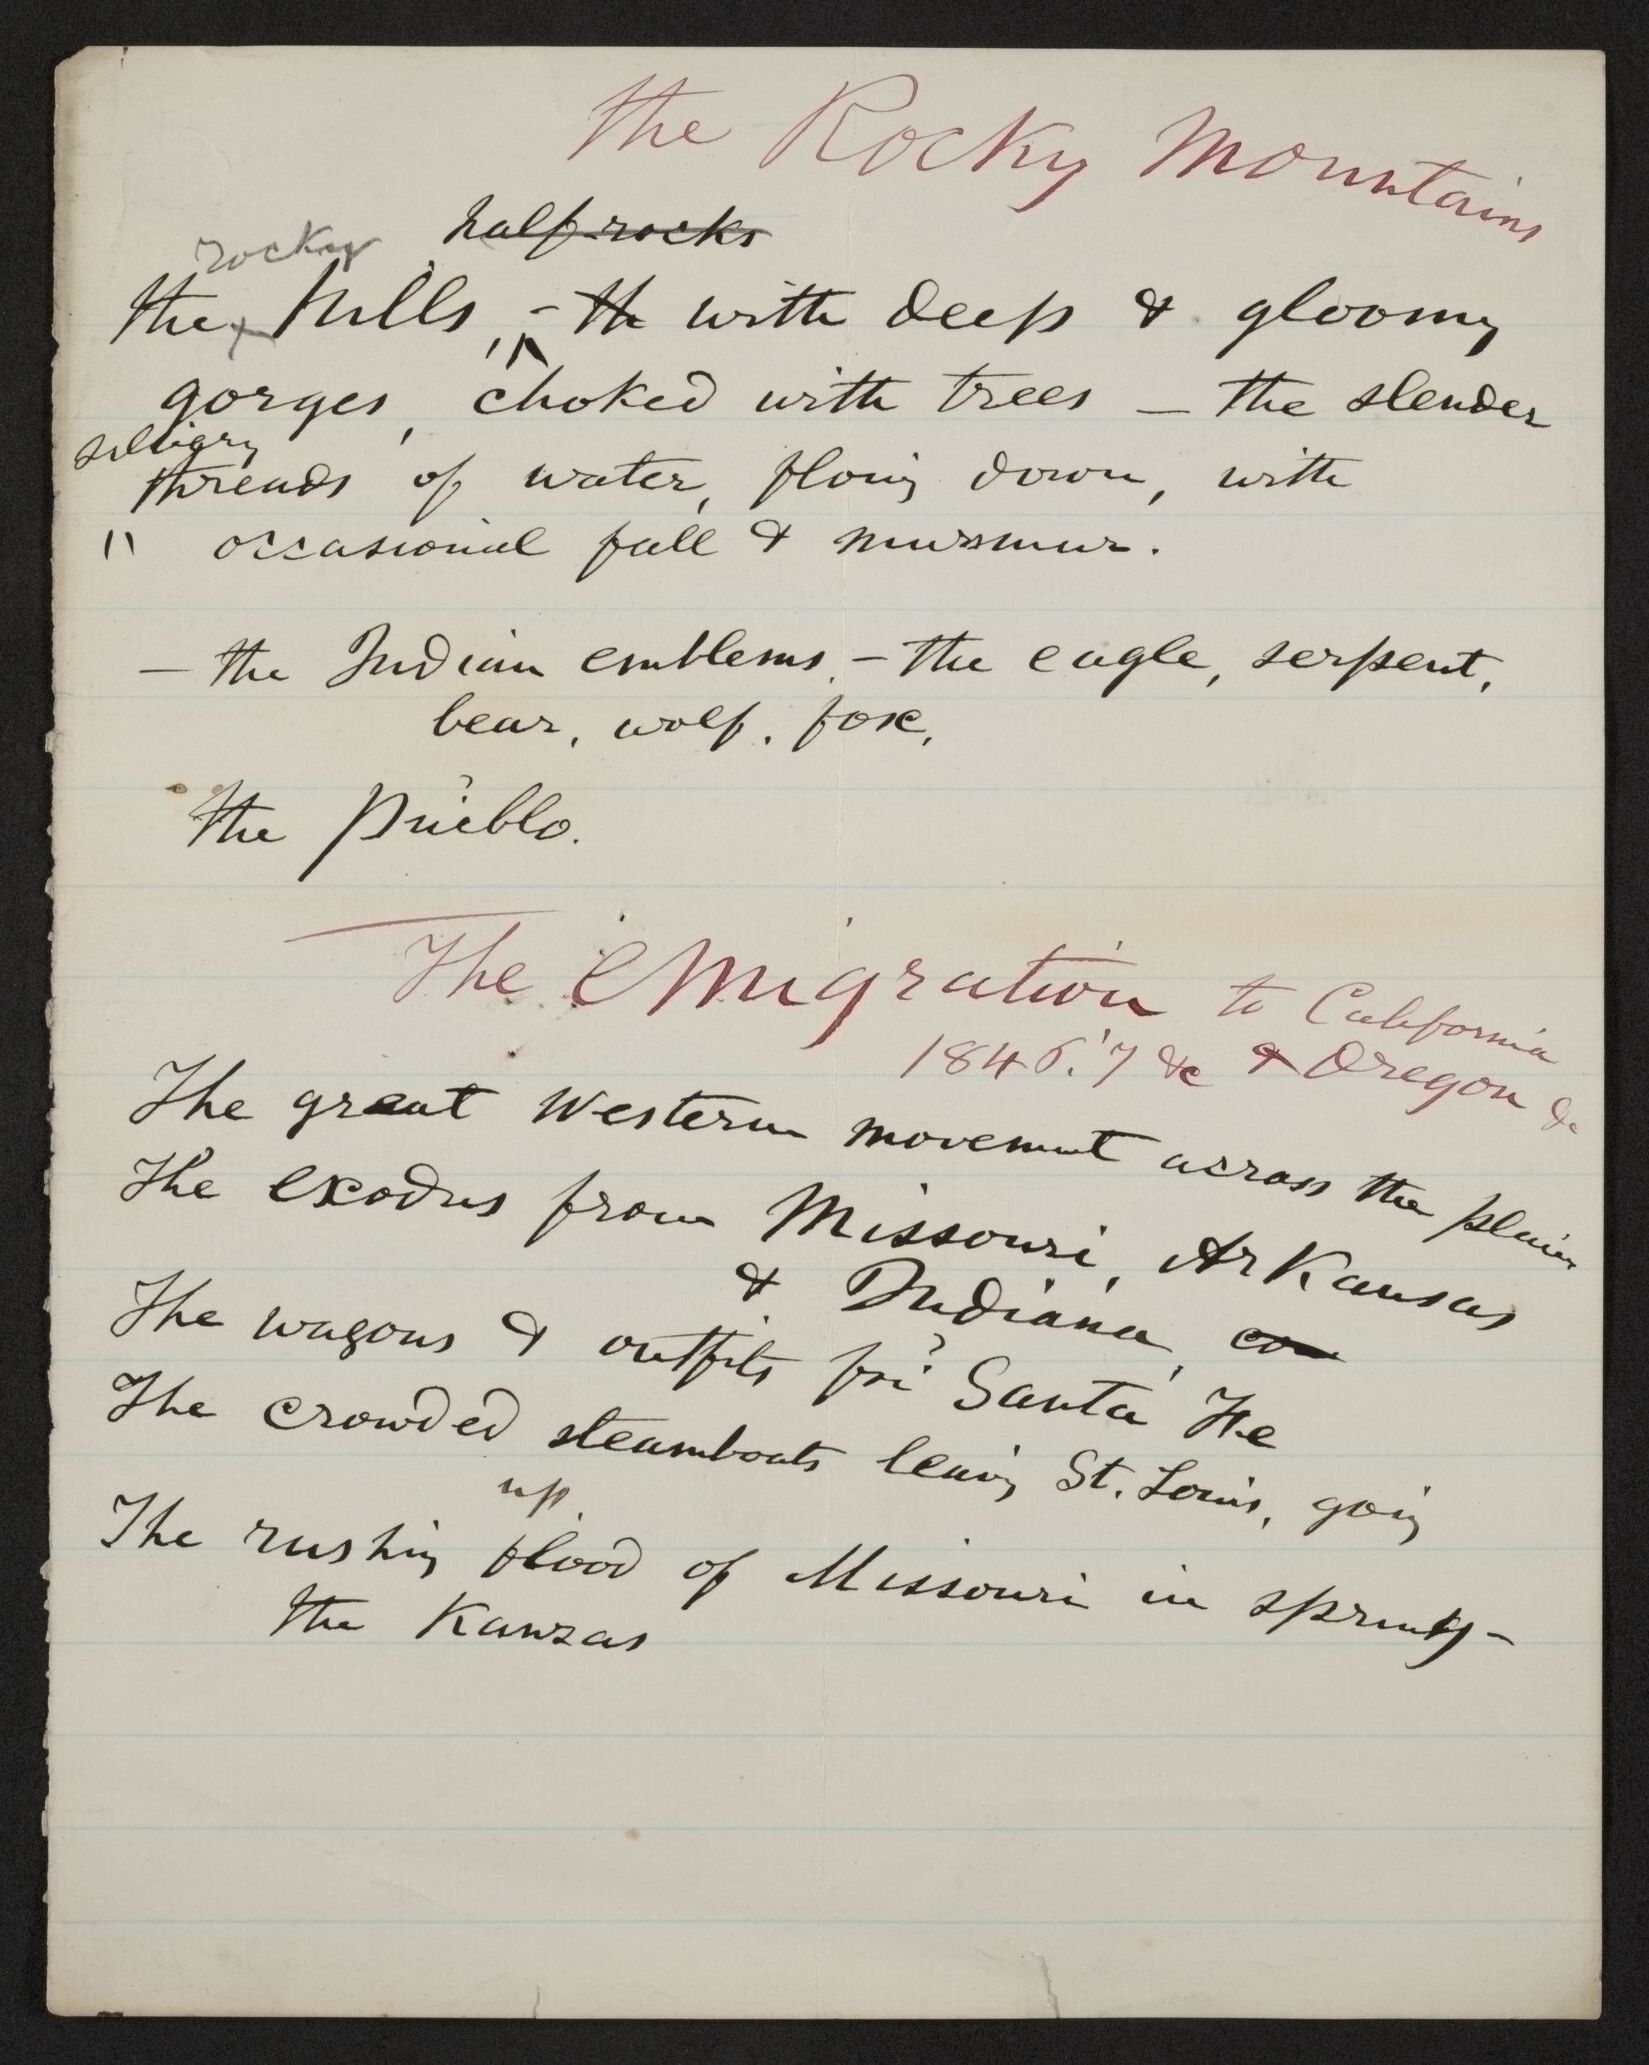 The Rocky Mountains
rocky half-rocks
the hills, - th with deep & gloomy
gorges, choked with trees — the slender
threads of water, floing down, with
" occasional fall & murmur.
— the Indian emblems. - the eagle, serpent,
bear, wolf, fox,
the Pueblo.
The emigration to California
1846.'7 &c & Oregon &c
The great Western movement across the plains
The exodus from Missouri, Arkansas
& Indiana, co
The wagons & outfits for Santa Fe
The crowded steamboats leaving St. Louis, going
up
The rushing flood of Missouri in spring -
the Kanzas